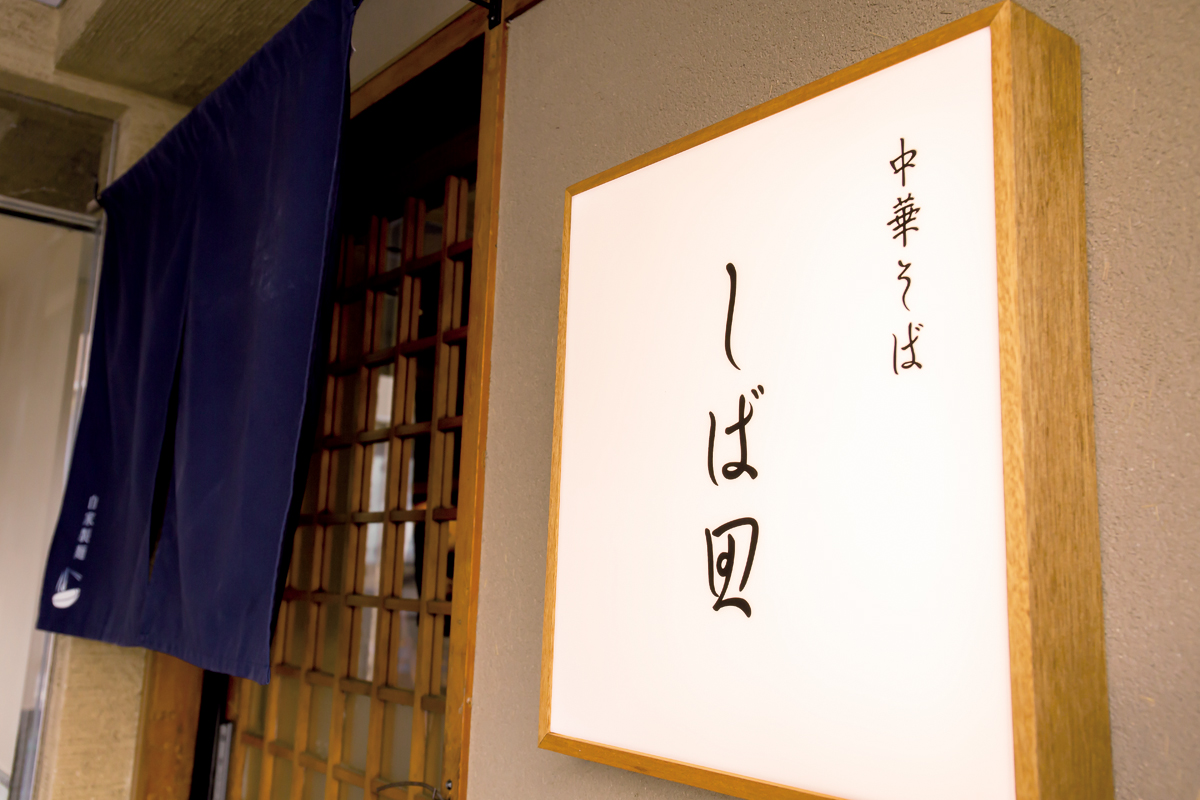 中華そば
しば田
自家製麺